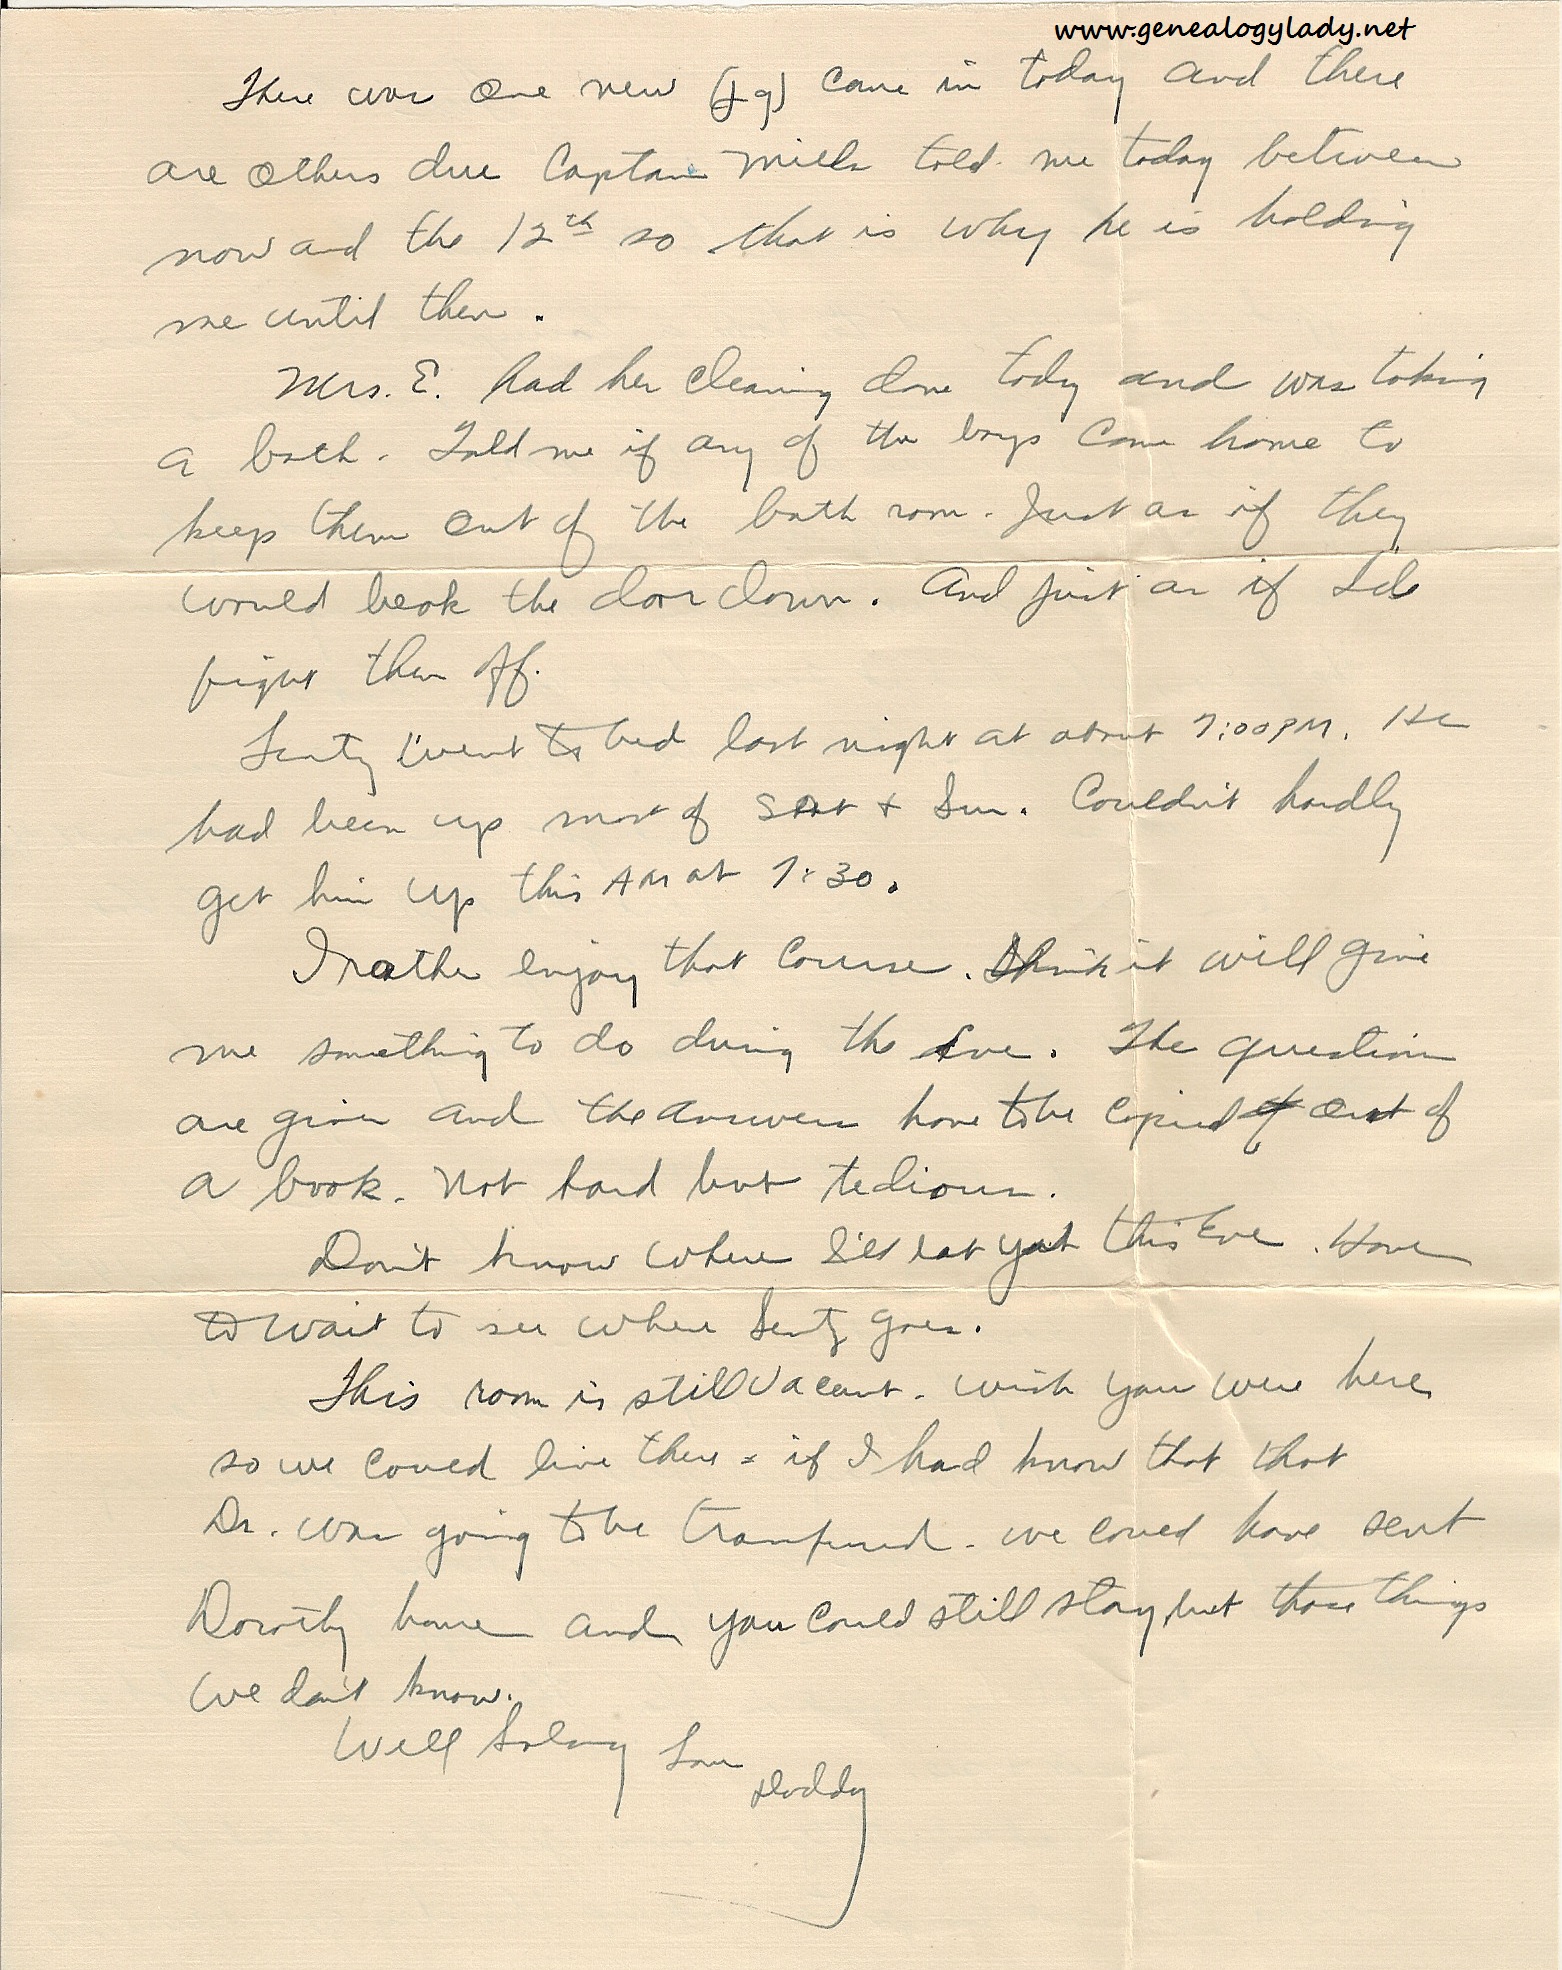 www.genealogylady.net
There was one new (jg) came in today and there
are others due Captain Mills told me today between
now and the 12th so that is why he is holding
me until then.
Mrs. E. had her cleaning done today and was taking
a bath. Told me if any of the boys came home to
keep them out of the bath room. Just as if they
would break the door down. And just as if I'd
fight them off.
went to bed last night at about 7:00 PM. He
had been up most of Sat + Sun. Couldn't hardly
get him up this AM at 7:30.
I rather enjoy that course. Think it will give
me something to do during the Eve. The question
are given and the answers have to be copied out of
a book. Not hard but tedious.
Don't know where I'll eat yet this Eve. Have
to wait to see where goes.
This room is still vacant. Wish you were here
so we could live there - if I had know that that
Dr. was going to be transfered. We could have sent
Dorothy home and you could still stay, but those things
we don't know.
Well So long Love
Daddy